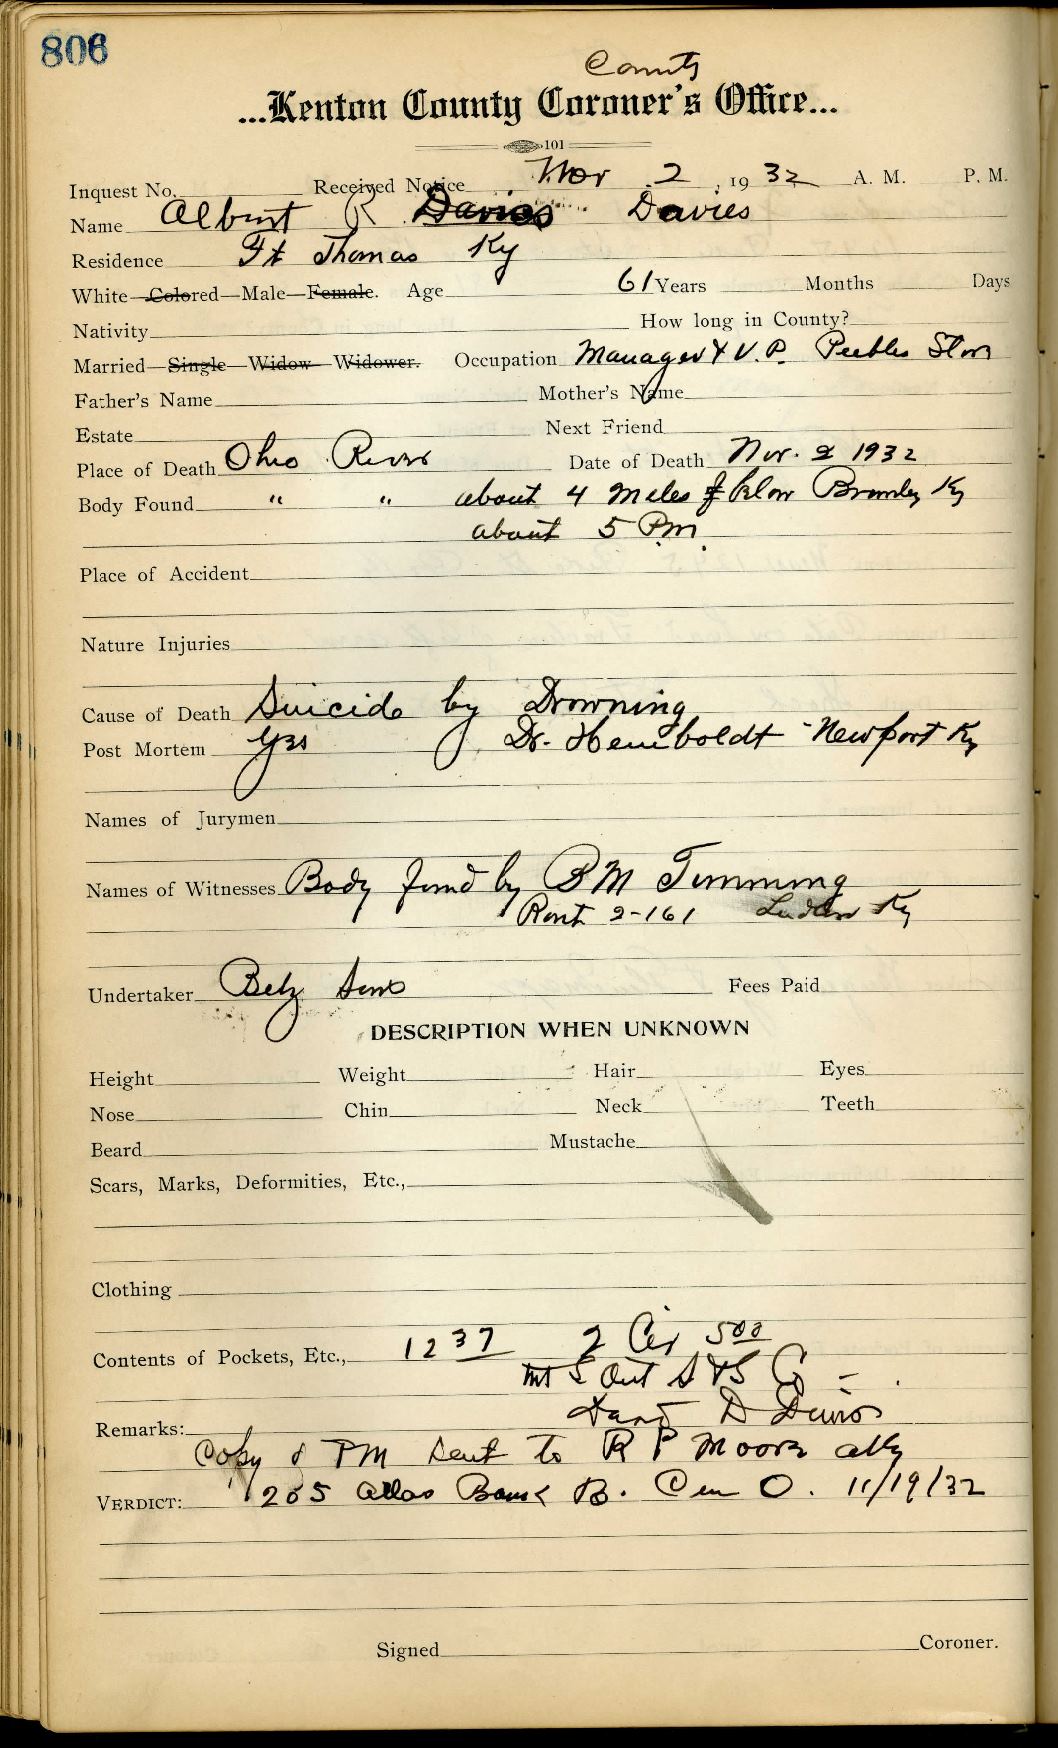 806
County
...Kenton County Coroner's Office...
101
Inquest No. Received Notice Nov 2, 1932 A. M. P. M.
Name Albert R Davies Davies
Residence Ft Thomas Ky
White—Colored—Male—Female. Age 61 Years Months Days
Nativity How long in County?
Married—Single—Widow—Widower. Occupation Manager & V. P. Peebles Stor
Father's Name Mother's Name
Estate Next Friend
Place of Death Ohio River Date of Death Nov. 2 1932
Body Found " " about 4 Miles below Bromley Ky
about 5 P.m.
Place of Accident
Nature Injuries
Cause of Death Suicide by Drowning
Post Mortem Yes Dr. Hemboldt - Newport Ky
Names of Jurymen
Names of Witnesses Body found by B M Timming
Rout 2-161 Ludlow Ky
Undertaker Betz Sons Fees Paid
DESCRIPTION WHEN UNKNOWN
Height Weight Hair Eyes
Nose Chin Neck Teeth
Beard Mustache
Scars, Marks, Deformities, Etc.,
Clothing
Contents of Pockets, Etc., 12 37 2 500
D
Remarks:
Copy of PM sent to R P Moore atty
VERDICT: 1205 Atlas Bank B. Cin O. 11/19/32
Signed Coroner.